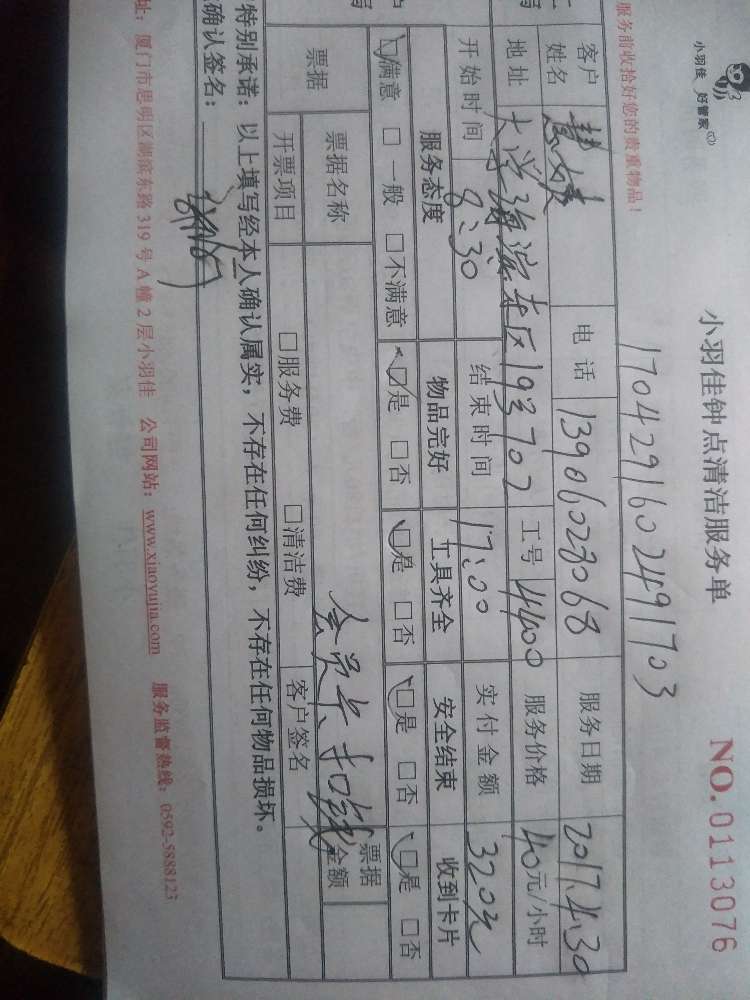 小羽佳 好管家
小羽佳钟点清洁服务单
NO.0113076
服务前收拾好您的贵重物品!
1704291602491703
客户姓名 电话 13906028068 服务日期 2017.4.30
地址 大学海滨东区193702 工号 4400 服务价格 40元/小时
开始时间 8:30 结束时间 17:00 实付金额 320元
服务态度 物品完好 工具齐全 安全结束 收到卡片
☑满意 □一般 □不满意 ☑是 □否 ☑是 □否 ☑是 □否 ☑是 □否
票据 票据名称 会员卡扣钱 票据金额
开票项目 □服务费 □清洁费 客户签名
特别承诺:以上填写经本人确认属实,不存在任何纠纷,不存在任何物品损坏。
确认签名:
址:厦门市思明区湖滨东路319号A幢2层小羽佳 公司网站:www.xiaoyujia.com 服务监督热线:0592-5888123